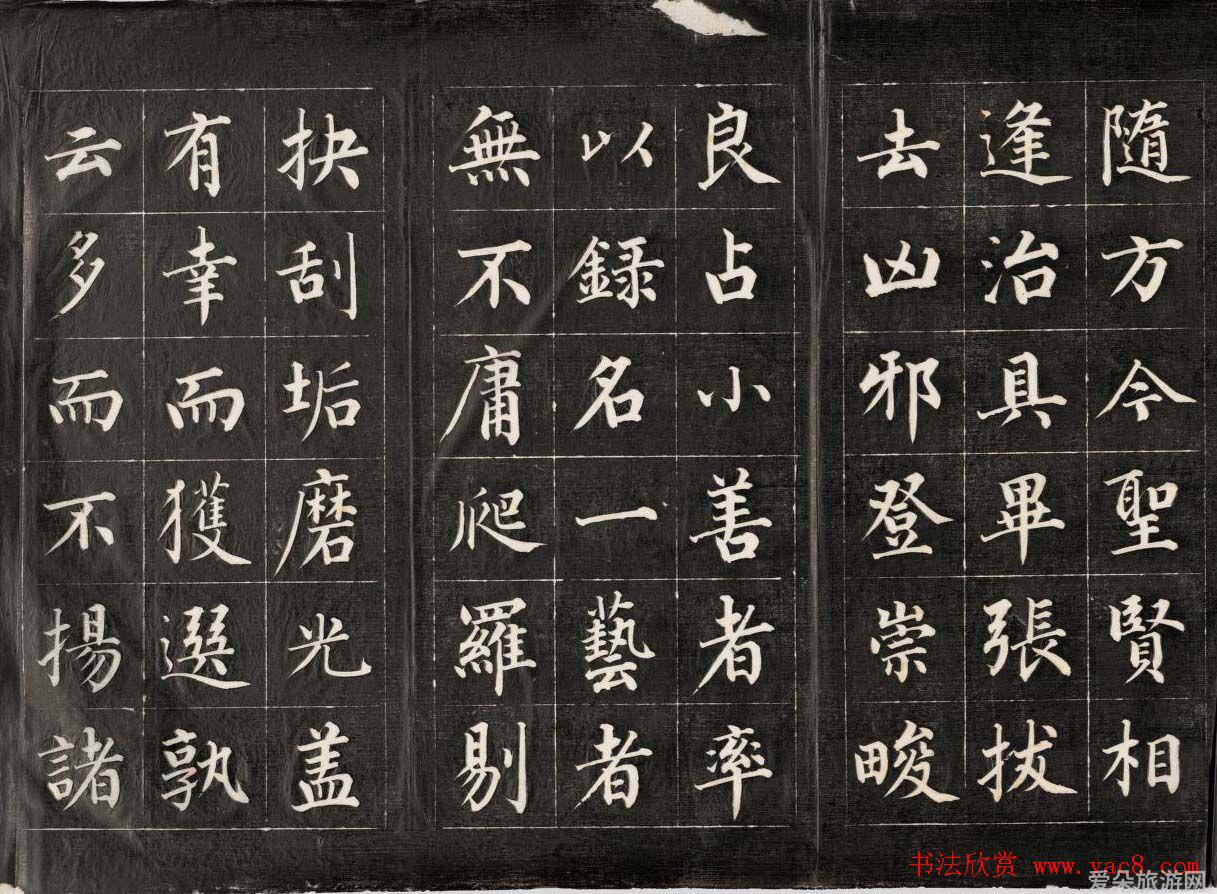 隨方今聖賢相
逢治具畢張拔
去凶邪登崇畯
良占小善者率
以録名一藝者
無不庸爬羅剔
抉刮垢磨光盖
有幸而獲選孰
云多而不揚諸
书法欣赏 www.yac8.com
爱朵旅游网